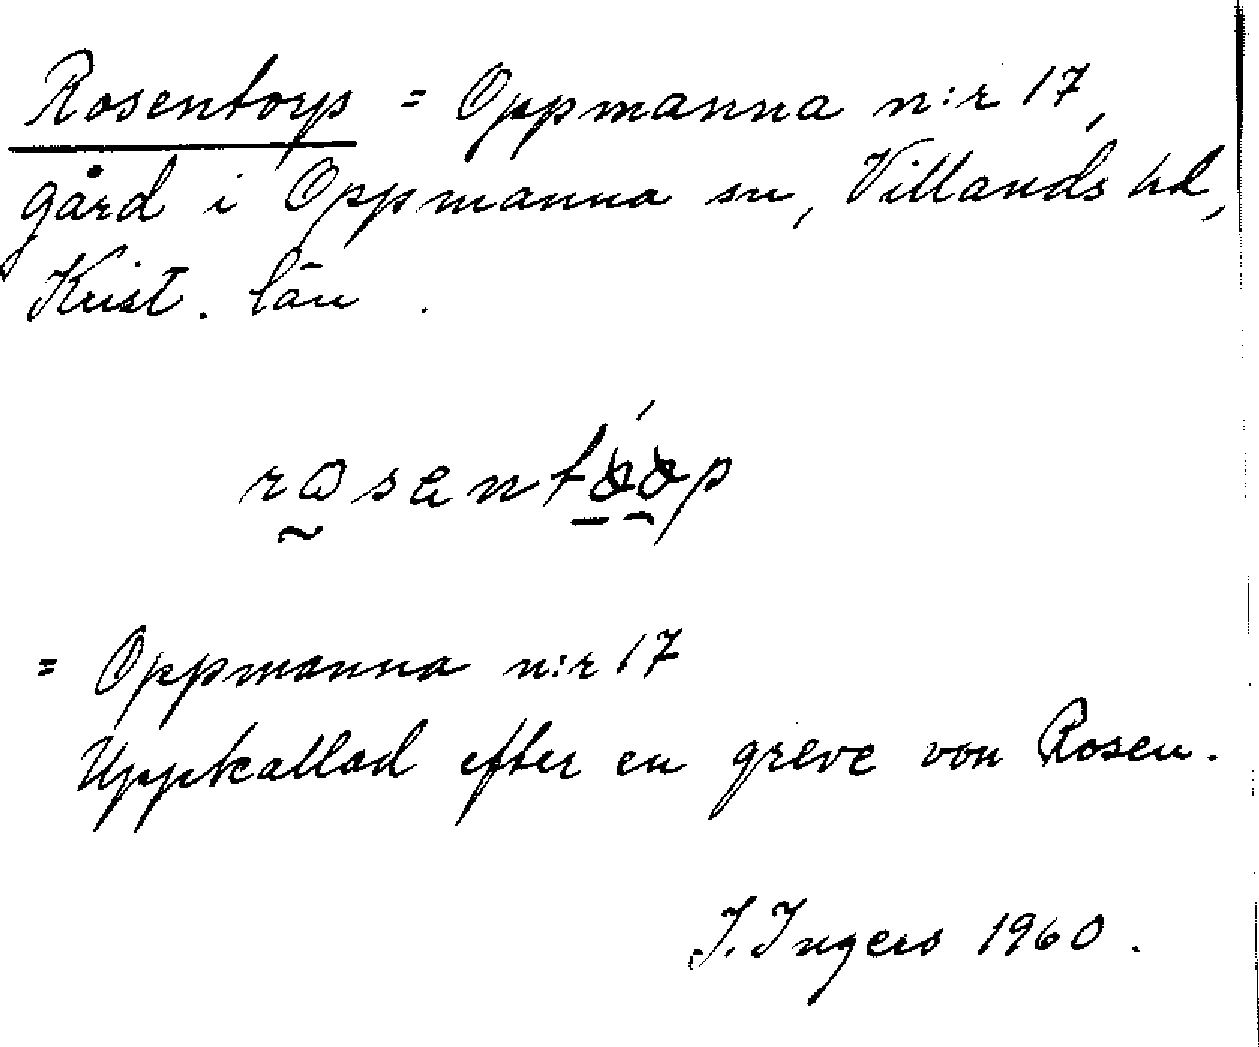 Rosentorp = Oppmanna n:r 17,
gård i Oppmanna sn, Villands hd,
Krist. län.
= Oppmanna n:r 17
Uppkallad efter en greve von Rosen.
I. Ingers 1960.